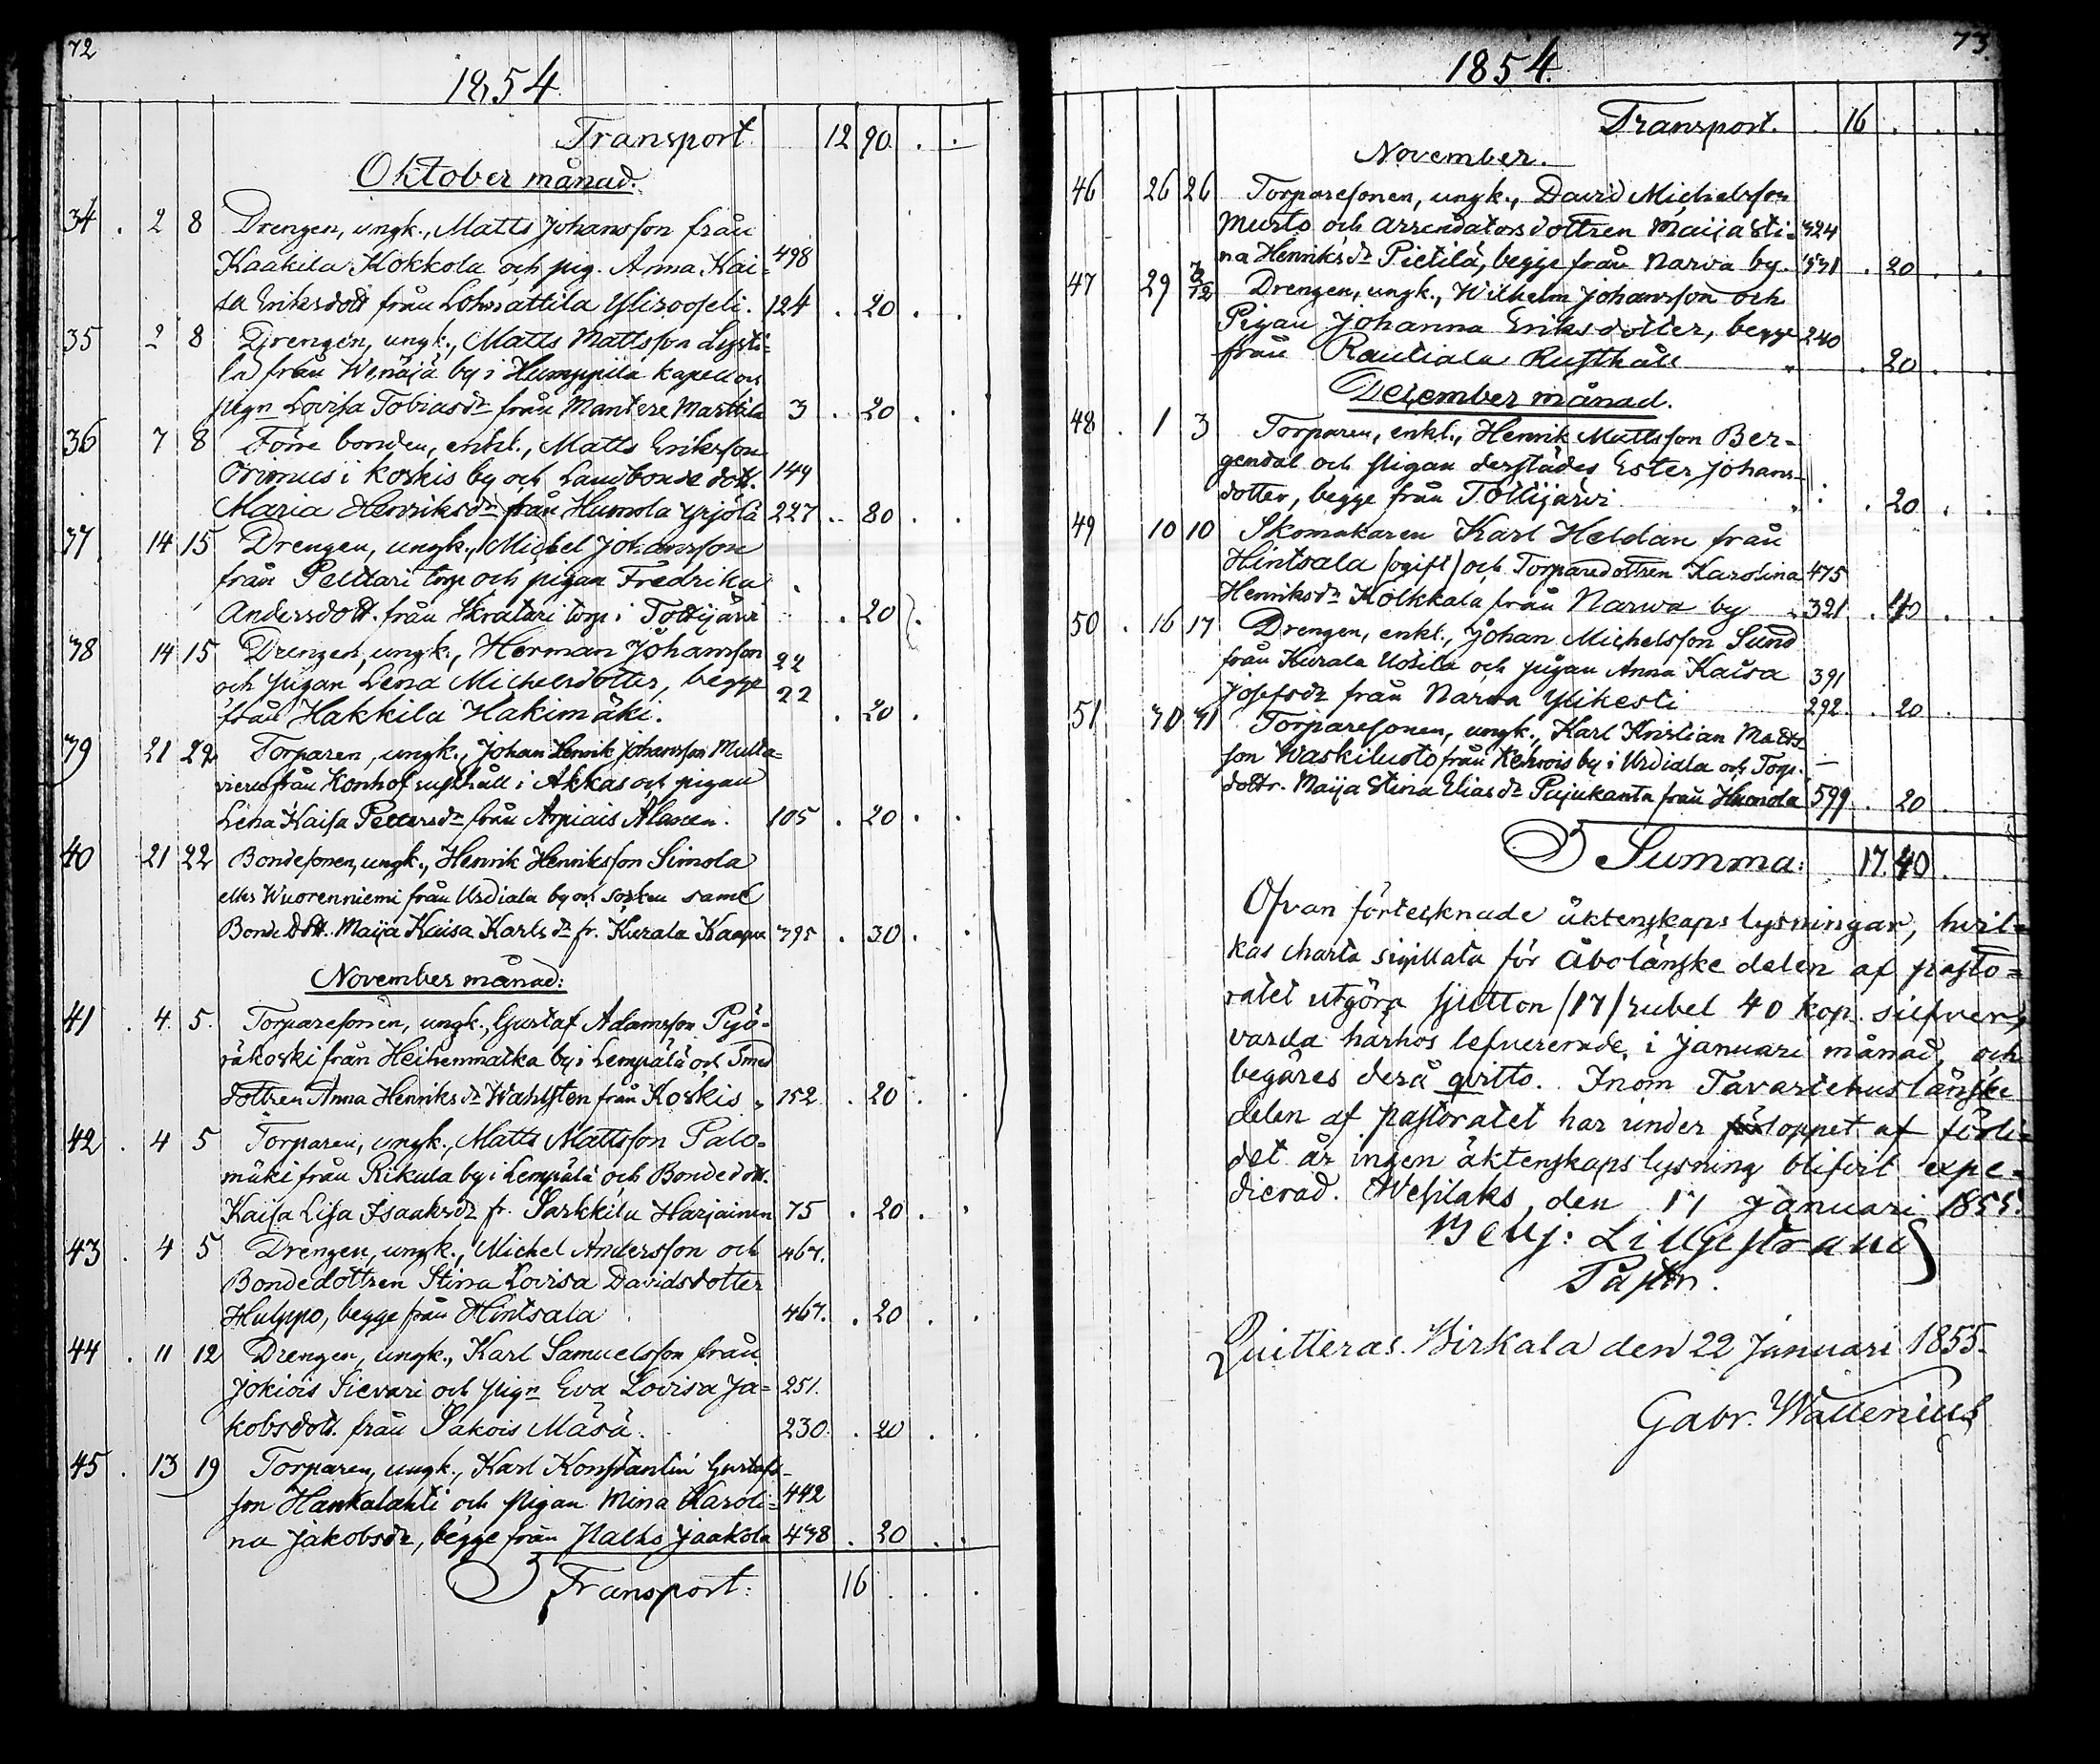 72
1854
Transport 12 90 . .
Oktober månad.
34 . 2 8 Drengen, ungk., Matts Johansson från
Kaakila Kokkola och pig. Anna Kai= 498
sa Eriksdott från Lohnattila Yliroofeli. 124 . 20 . .
35 2 8 Drengen, ungk., Matts Mattsson Lysti=
lä från Wenäjä by i Humppila kapell och
pign Lovisa Tobiasdr från Mantere Marttila 3 . 20 . .
36 7 8 Förre bonden, enkl., Matts Eriksson
i Koskis by och Landbonde dott. 149
Maria Henriksdr från Humola Yrjölä 227 . 80 . .
37 14 15 Drengen, ungk., Michel Johansson
från Pelttari torp och pigan Fredrika
Andersdott. från Skratari torp i Tottijärvi . 20 .
38 14 15 Drengen, ungk., Herman Johansson 22
och pigan Lena Michelsdotter, begge 22
från Hakkila Hakimäki. . 20 .
39 21 22 Torparen, ungk., Johan Henrik Johansson Multa=
vieru från Konhof rusthåll i Akkas och pigan
Lena Kaisa Pettersdr från Arpiais Alanen. 105 . 20 . .
40 21 22 Bondesonen, ungk., Henrik Henriksson Simola
eller Wuorenniemi från Urdiala by och socken samt
BondeDott. Maija Kaisa Karlsdr fr. Kurala Kaapu 395 . 30 . .
November månad:
41 . 4. 5. Torparesonen, ungk., Gustaf Adamsson Pyö=
räkoski från Heihenmatka by i Lempälä och Smed
dottren Anna Henriksdr Wahlsten från Koskis „ 152 . 20 . .
42 . 4 5 Torparen, ungk., Matts Mattsson Palo=
mäki från Rikula by i Lempälä och Bondedott.
Kaisa Lisa Isaaksdr fr. Sarkkila Harjainen 75 . 20 . .
43 . 4 5 Drengen, ungk., Michel Andersson och 467.
Bondedottren Stina Lovisa Davidsdotter
Hulppo, begge från Hintsala 467. . 20 . .
44 . 11 12 Drengen, ungk., Karl Samuelsson från
Jokiois Sievari och pign Eva Lovisa Ja= 251.
kobsdott. från Sakois Mäsä. 230. . 20 . .
45 . 13 19 Torparen, ungk., Karl Konstantin Gustafs=
son Hankalahti och pigan Mina Karoli= 442
na Jakobsdr, begge från Jaakola 438 . 20 . .
Transport: 16 . .
73
1854.
Transport. . 16 . . .
November.
46 26 26 Torparesonen, ungk., David Michelsson
Murto och Arrendatorsdottren Maija Sti= 324
na Henriksdr Pietilä, begge från Narva by. 331 . 20 . .
47 29 3/12 Drengen, ungk., Wilhelm Johansson och
Pigan Johanna Eriksdotter, begge 240
från Rautiala Rusthåll „ . 20 . .
December månad.
48 . 1 3 Torparen, enkl., Henrik Mattsson Ber=
gendal och pigan derstädes Ester Johans=
dotter, begge från Tottijärvi „ . 20 . .
49 10 10 Skomakaren Karl Heldán från
Hintsala (ogift) och Torparedottren Karolina 475
Henriksdr Kolkkala från Narwa by „ 321 . 40 . .
50 . 16 17 Drengen, enkl., Johan Michelsson Sund
från Kurala Uotila och pigan Anna Kaisa 391
Josefsdr från Narva Ylikesti 292 . 20 . .
51 30 31 Torparesonen, ungk., Karl Kristian Matts
son Waskiluoto från Kehrois by i Urdiala och Torp. —
dottr. Maija Stina Eliasdr Pujukanta från Humola 599 . 20
Summa: 17. 40 .
Ofvan förtecknade äktenskapslysningar, hvil=
kas charta sigillata för Åbolänske delen af pasto=
ratet utgöra sjutton (17) rubel 40 kop. silfver,
varda härhos lefvererade, i januari månad, och
begäres derå qvitto. Inom Tavastehuslänske
delen af pastoratet har under loppet af förli=
det år ingen äktenskapslysning blifvit expe=
dierad. Wesilaks, den 17 januari 1855.
Benj: Lilljestrand
Pastor.
Quitteras. Birkala den 22 Januari 1855.
Gabr. Wallenius